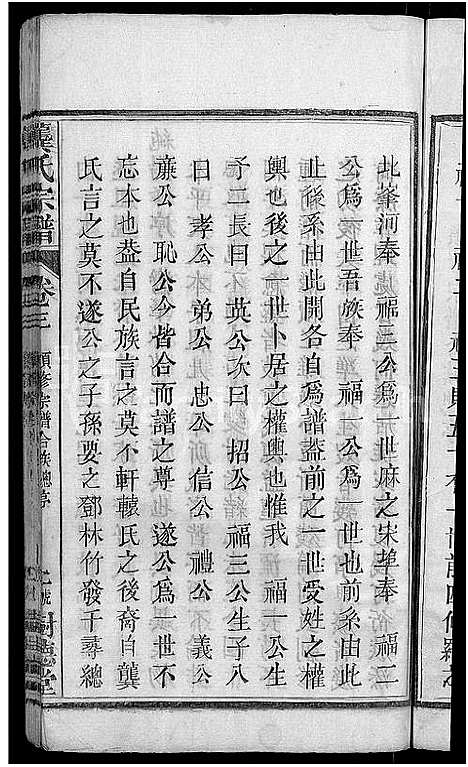 此峯河奉　福三公爲一世麻之宋埠奉　福二
公爲一世吾族奉　福一公爲一世也前系由此
止後系由此開各自爲譜蓋前之一世受姓之權
輿也後之一世卜居之權輿也惟我　福一公生
子二長曰　英公次曰　招公福三公生子八
曰　孝公　弟公　忠公　信公　禮公　義公
廉公　恥公今皆合而譜之尊　遂公爲一世不
忘本也益自民族言之莫不軒轅氏之後裔自龔
氏言之莫不遂公之子孫要之鄧林竹發千尋總
龔氏宗譜
卷三
須修宗譜合族總序
樹德堂